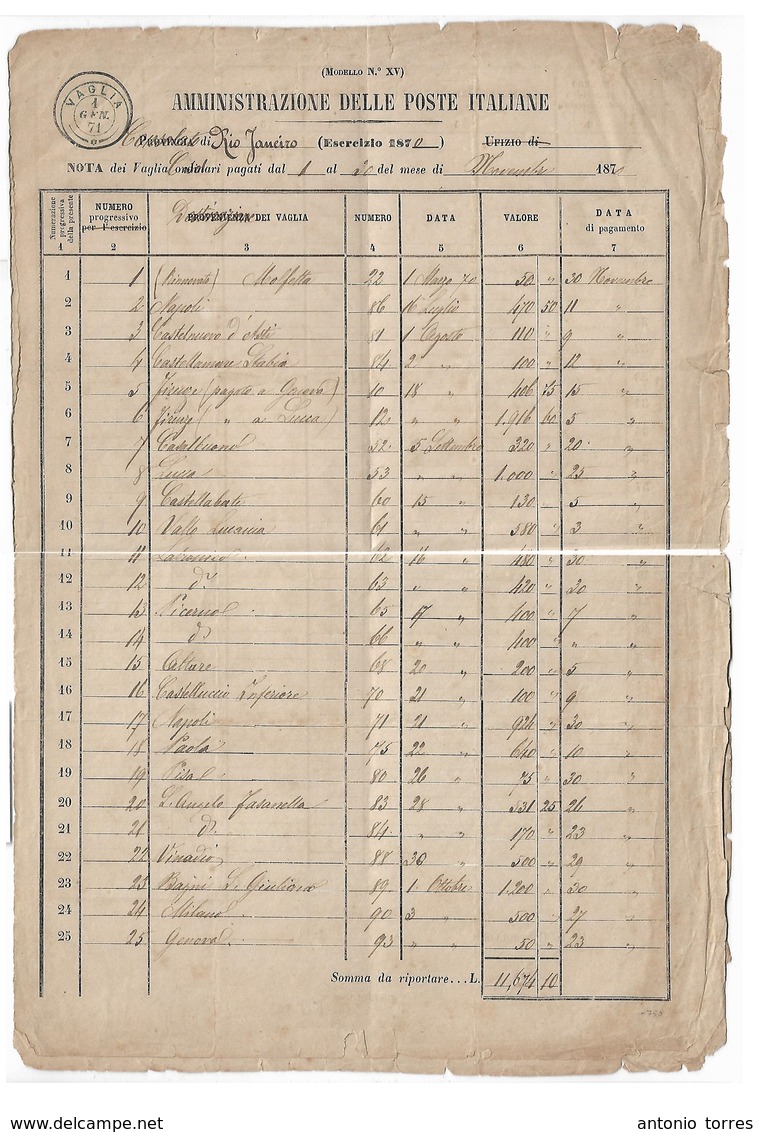 (Modello N.º XV)
AMMINISTRAZIONE DELLE POSTE ITALIANE
VAGLIA
1
GEN.
71
Provincia di Rio Janeiro (Esercizio 1870) Ufizio di
NOTA dei Vaglia Consolari pagati dal 1 al 30 del mese di Novembre 1870
Numerazione progressiva della presente
NUMERO progressivo per l'esercizio
Destinazione PROVENIENZA DEI VAGLIA
NUMERO
DATA
VALORE
DATA di pagamento
1 2 3 4 5 6 7
1 1 (Rinnovato) Molfetta 22 1 Marzo 70 50 " 30 Novembre
2 2 Napoli 86 16 Luglio 470 50 11 "
3 3 Castelnuovo d'Asti 81 1 Agosto 110 " 9 "
4 4 Castellamare Stabia 84 2 " 100 " 12 "
5 5 Firenze (pagato a Genova) 10 18 " 406 75 15 "
6 6 Firenze ( " a Lucca) 12 " " 1.916 60 5 "
7 7 Casalbuono 52 5 Settembre 320 " 20 "
8 8 Lucca 53 " " 1.000 " 25 "
9 9 Castellabate 60 15 " 130 " 5 "
10 10 Vallo Lucania 61 " " 580 " 3 "
11 11 62 16 " 480 " 30 "
12 12 d.º 63 " " 420 " 20 "
13 13 Picerno 65 17 " 400 " 7 "
14 14 d.º 66 " " 400 " " "
15 15 68 20 " 200 " 5 "
16 16 Castelluccio Inferiore 70 21 " 100 " 9 "
17 17 Napoli 71 21 " 924 " 30 "
18 18 Paola 75 22 " 640 " 10 "
19 19 Pisa 80 26 " 75 " 30 "
20 20 S. Angelo Fasanella 83 28 " 331 25 26 "
21 21 d.º 84 " " 170 " 23 "
22 22 Vinadio 88 30 " 500 " 29 "
23 23 Bagni S. Giuliano 89 1 Ottobre 1.200 " 30 "
24 24 Milano 90 3 " 500 " 27 "
25 25 Genova 93 " " 50 " 23 "
Somma da riportare...L. 11,674 10
delcampe.net
antonio torres